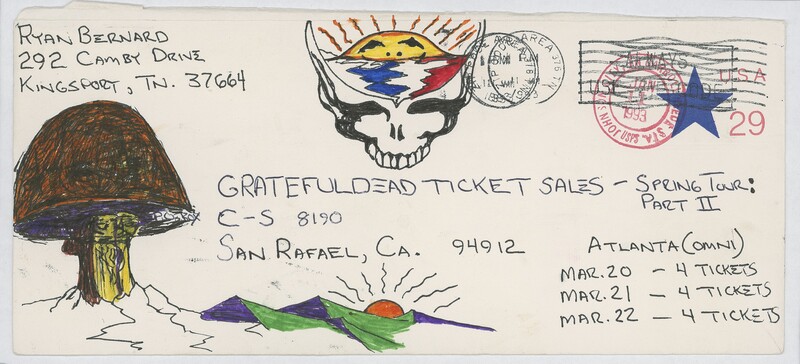 RYAN BERNARD
292 CAMBY DRIVE
KINGSPORT, TN. 37664
GRATEFUL DEAD TICKET SALES - SPRING TOUR:
PART II
C-S 8190
SAN RAFAEL, CA. 94912
ATLANTA (OMNI)
MAR. 20 - 4 TICKETS
MAR. 21 - 4 TICKETS
MAR. 22 - 4 TICKETS
USA
29
1993
AREA
ALWAYS
USPS